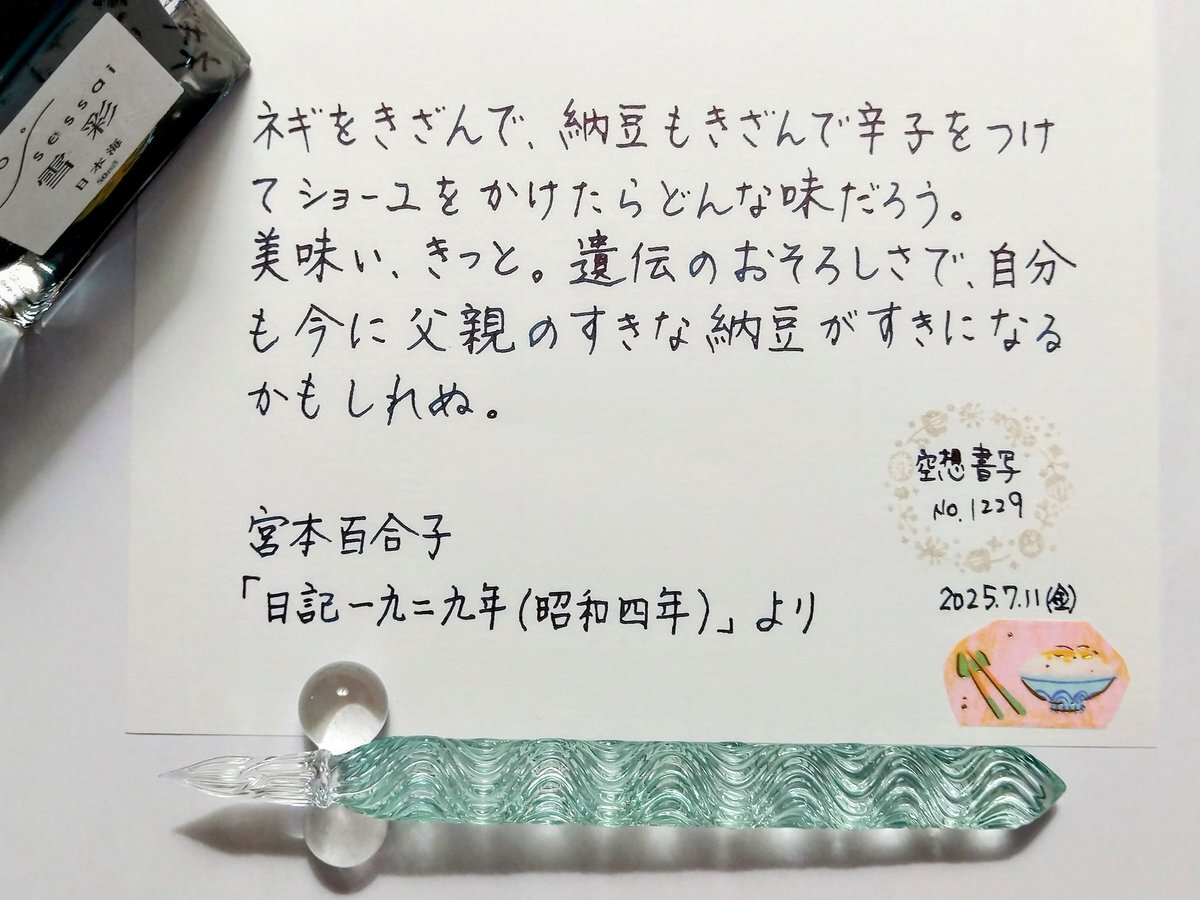 ネギをきざんで、納豆もきざんで辛子をつけ
てショーユをかけたらどんな味だろう。
美味い、きっと。遺伝のおそろしさで、自分
も今に父親のすきな納豆がすきになる
かもしれぬ。
宮本百合子
「日記一九二九年(昭和四年)」より
空想書写
No.1229
2025.7.11(金)
sessai
雪彩
日本海